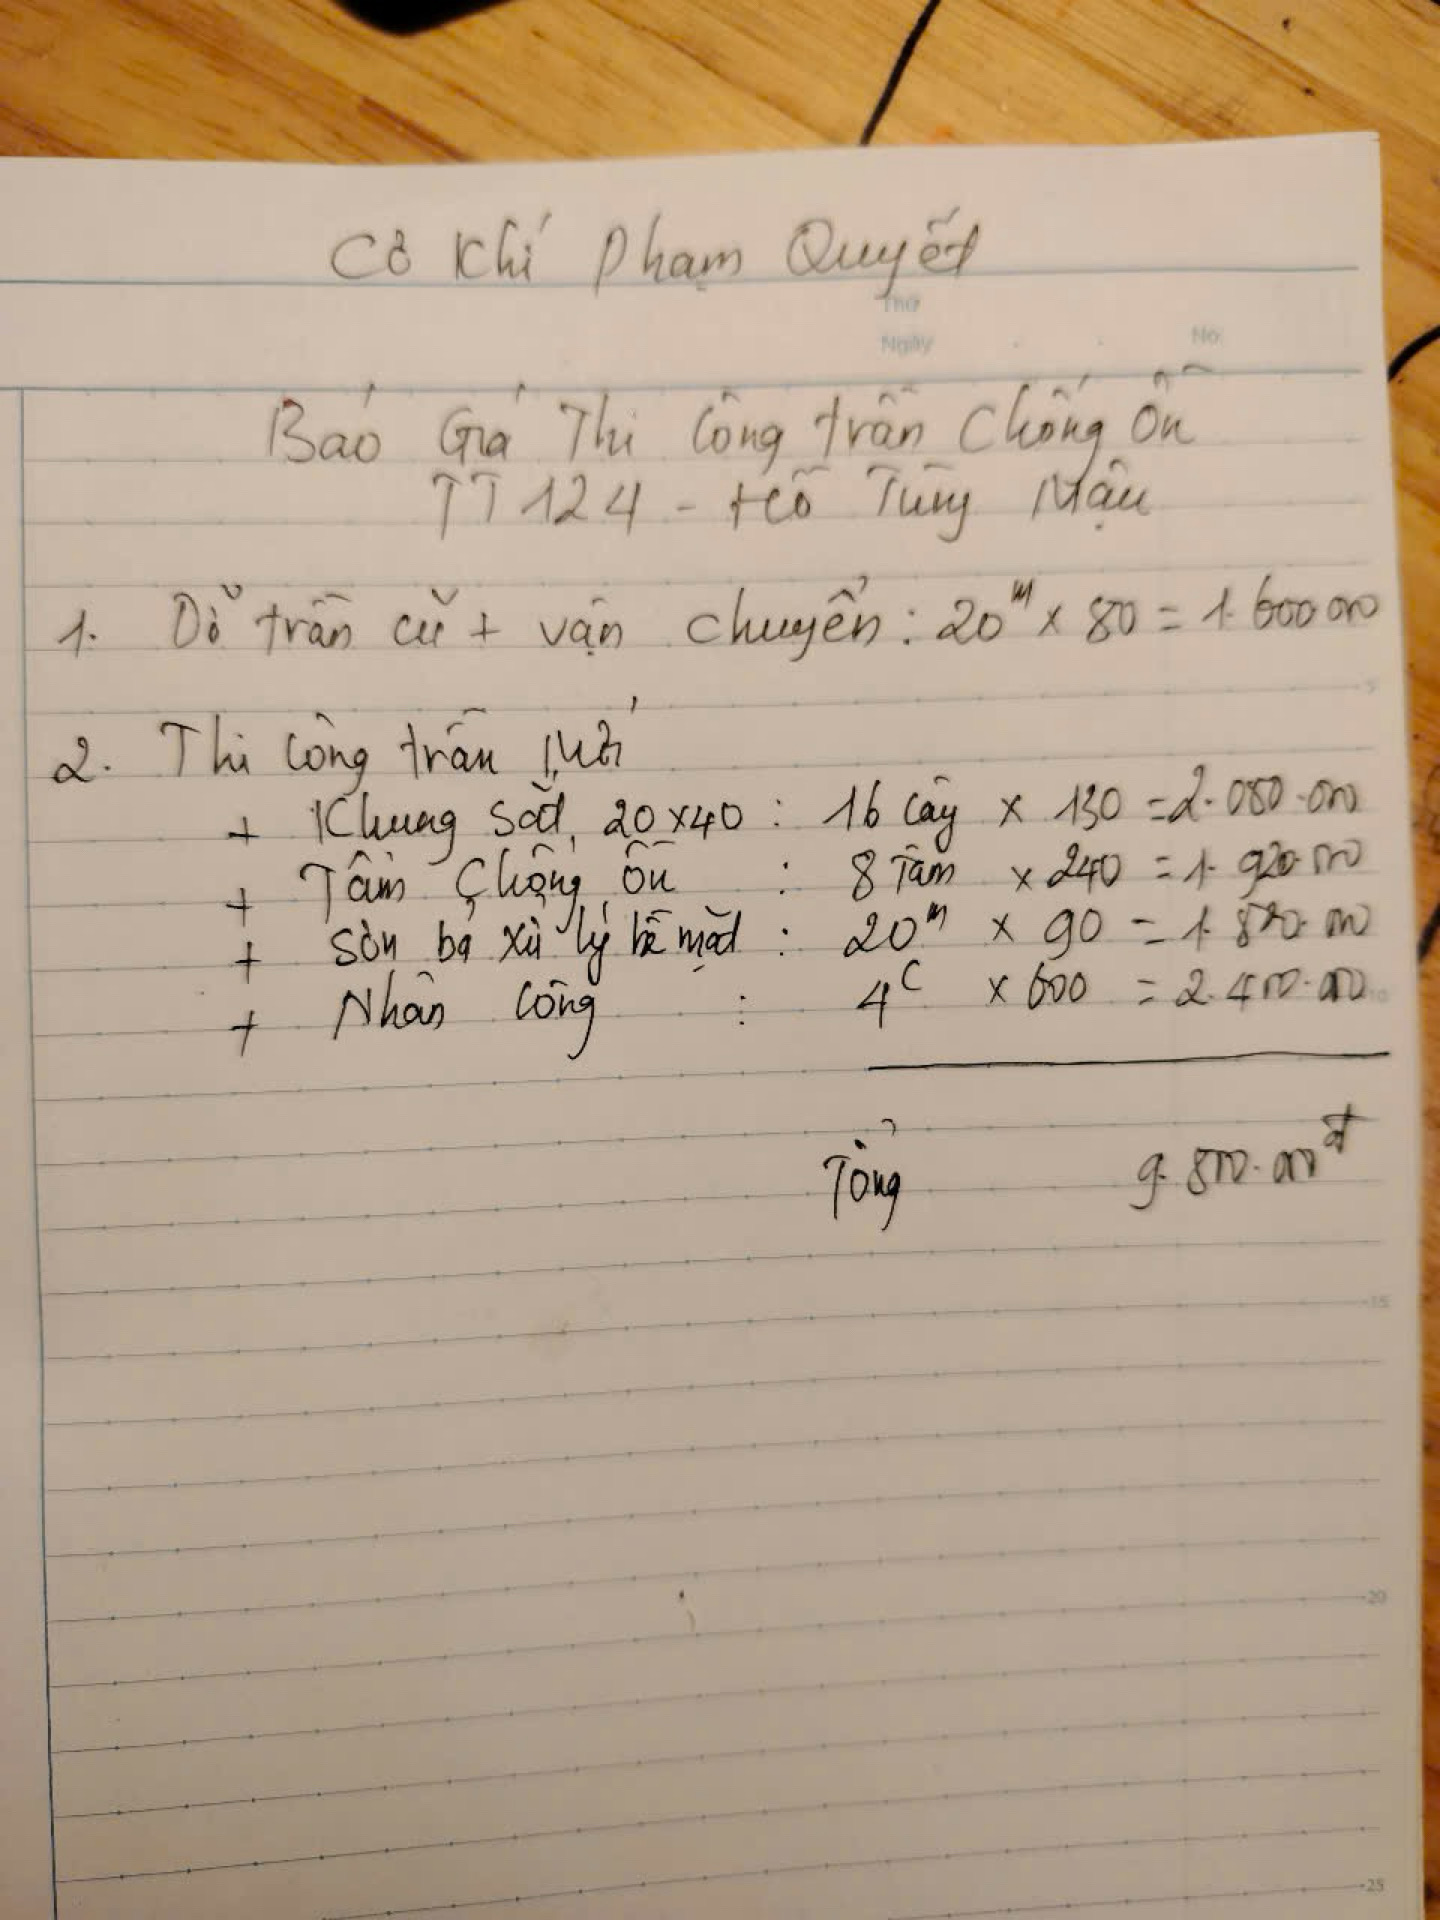 Cơ Khí Phạm Quyết
Thứ
Ngày No.
Báo Giá Thi Công trần Chống Ồn
TT 124 - Hồ Tùng Mậu
1. Dỡ trần cũ + vận chuyển : 20m x 80 = 1.600.000
2. Thi Công trần Mới
+ Khung sắt 20x40 : 16 cây x 130 = 2.080.000
+ Tấm Chống ồn : 8 Tấm x 240 = 1.920.000
+ Sơn bả xử lý bề mặt : 20m x 90 = 1.800.000
+ Nhân Công : 4C x 600 = 2.400.000
Tổng 9.800.000đ
15
20
25